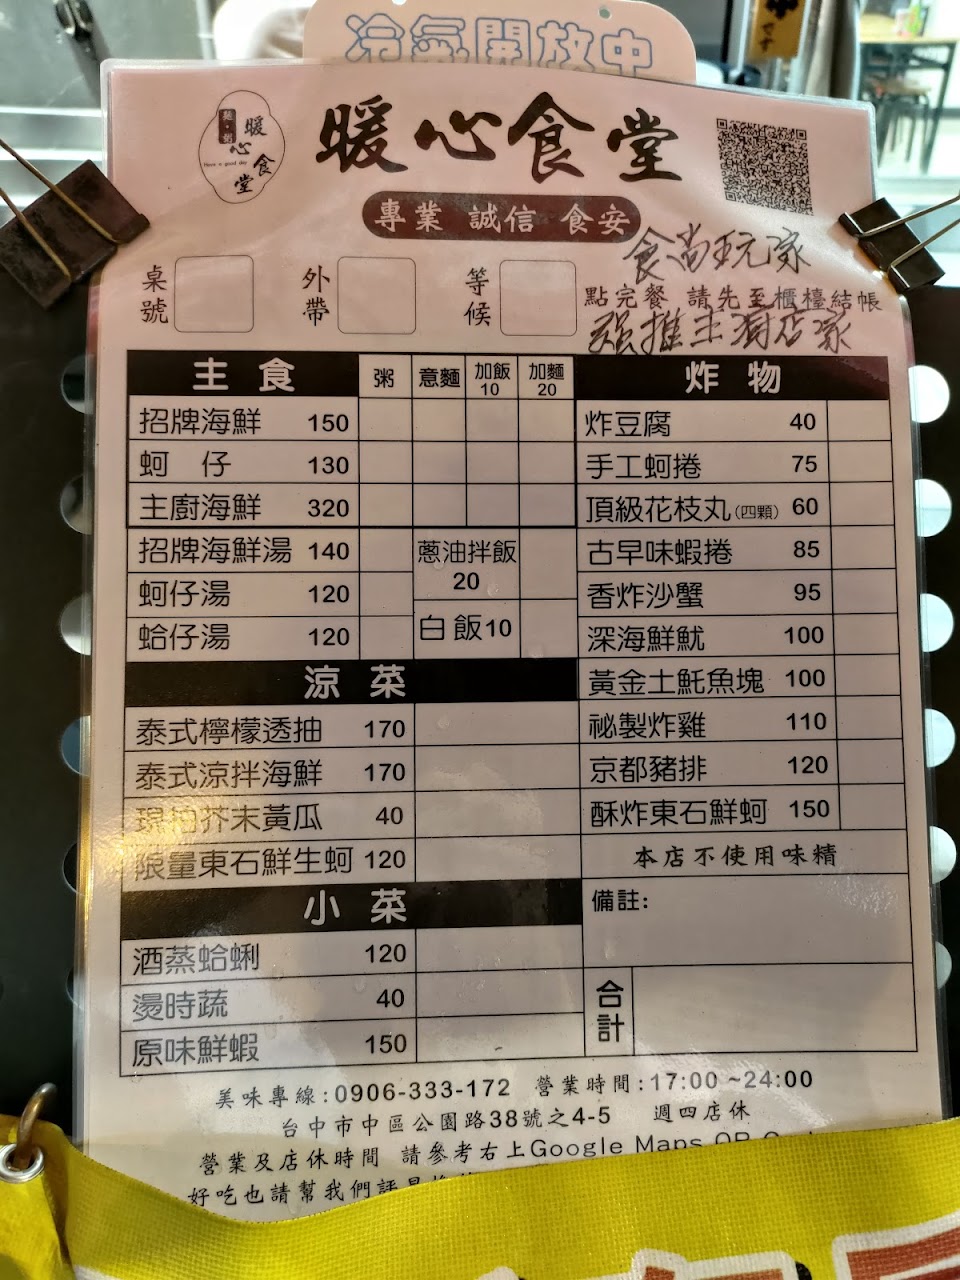 冷氣開放中
暖心食堂
Have a good day
暖心食堂
專業 誠信 食安
食尚玩家
桌號
外帶
等候
點完餐 請先至櫃檯結帳
強推主廚店家
主食 粥 意麵 加飯10 加麵20
招牌海鮮 150
蚵仔 130
主廚海鮮 320
招牌海鮮湯 140
蚵仔湯 120
蛤仔湯 120
蔥油拌飯 20
白飯10
涼菜
泰式檸檬透抽 170
泰式涼拌海鮮 170
現拍芥末黃瓜 40
限量東石鮮生蚵 120
小菜
酒蒸蛤蜊 120
燙時蔬 40
原味鮮蝦 150
炸物
炸豆腐 40
手工蚵捲 75
頂級花枝丸(四顆) 60
古早味蝦捲 85
香炸沙蟹 95
深海鮮魷 100
黃金土魠魚塊 100
祕製炸雞 110
京都豬排 120
酥炸東石鮮蚵 150
本店不使用味精
備註:
合計
美味專線:0906-333-172 營業時間:17:00 ~24:00
台中市中區公園路38號之4-5 週四店休
營業及店休時間 請參考右上Google Maps QR
好吃也請幫我們評